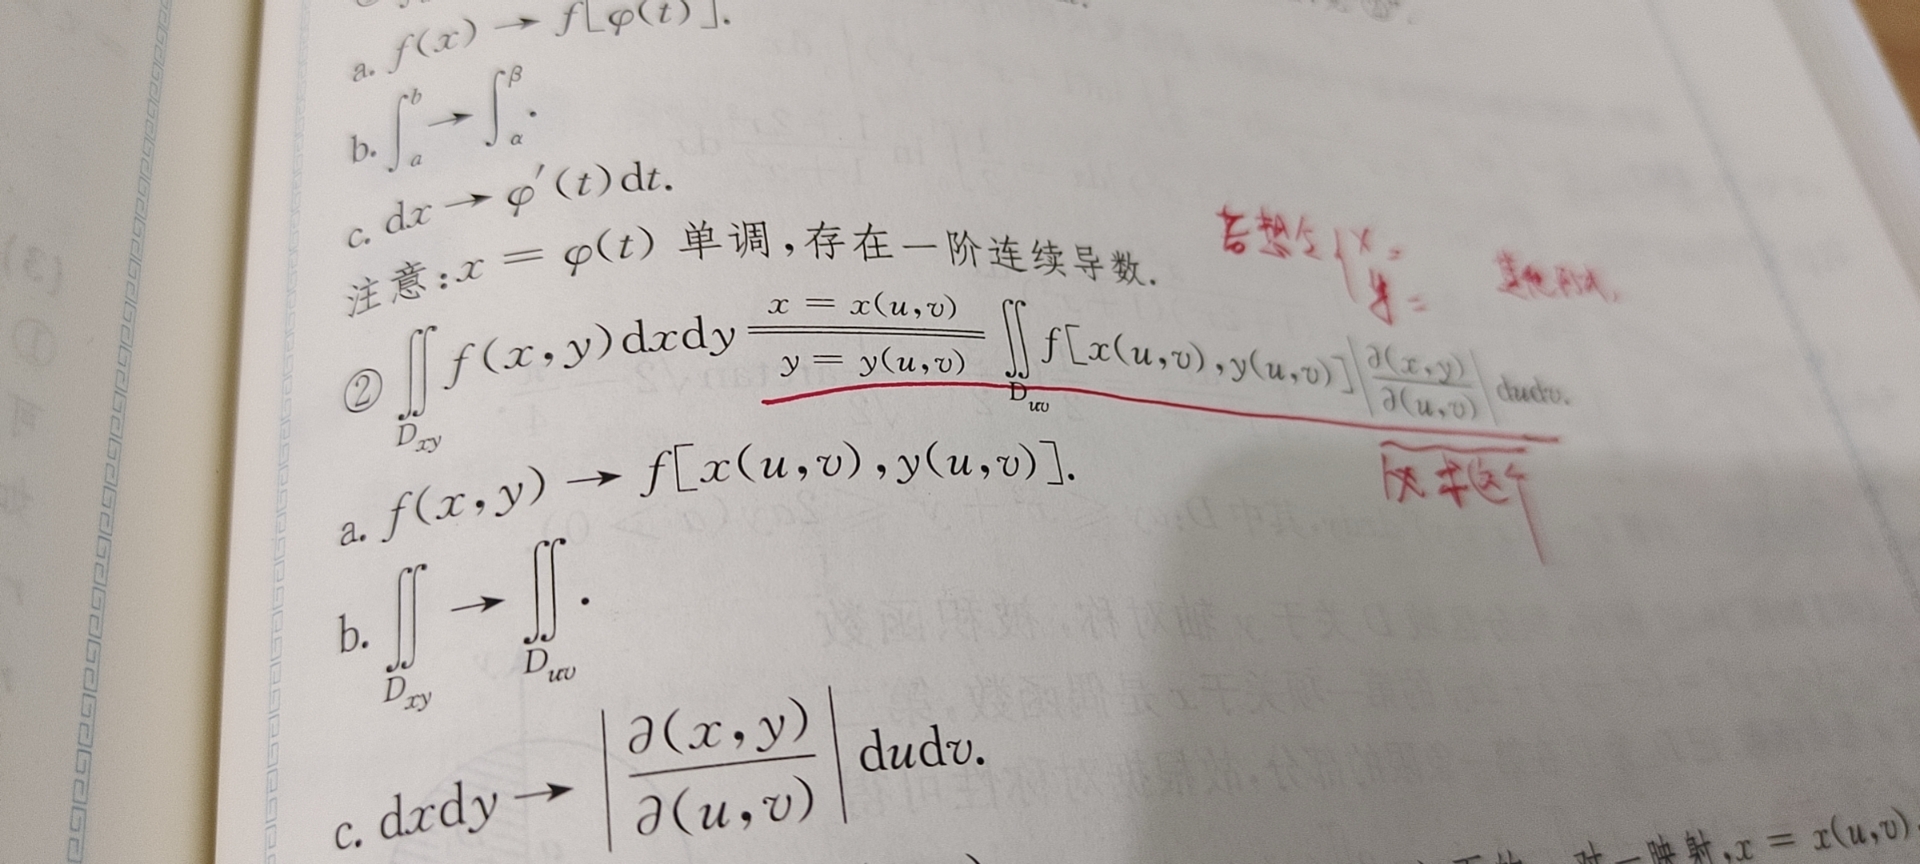 a. f(x) → f[φ(t)].
b. ∫_a^b → ∫_α^β.
c. dx → φ′(t)dt.
注意:x = φ(t) 单调,存在一阶连续导数.
若想令{x=
y=
② ∬_{D_{xy}} f(x,y)dxdy \xlongequal[y = y(u,v)]{x = x(u,v)} ∬_{D_{uv}} f[x(u,v),y(u,v)]|∂(x,y)/∂(u,v)|dudv.
a. f(x,y) → f[x(u,v),y(u,v)].
b. ∬_{D_{xy}} → ∬_{D_{uv}}.
c. dxdy → |∂(x,y)/∂(u,v)|dudv.
一映射,x = x(u,v),